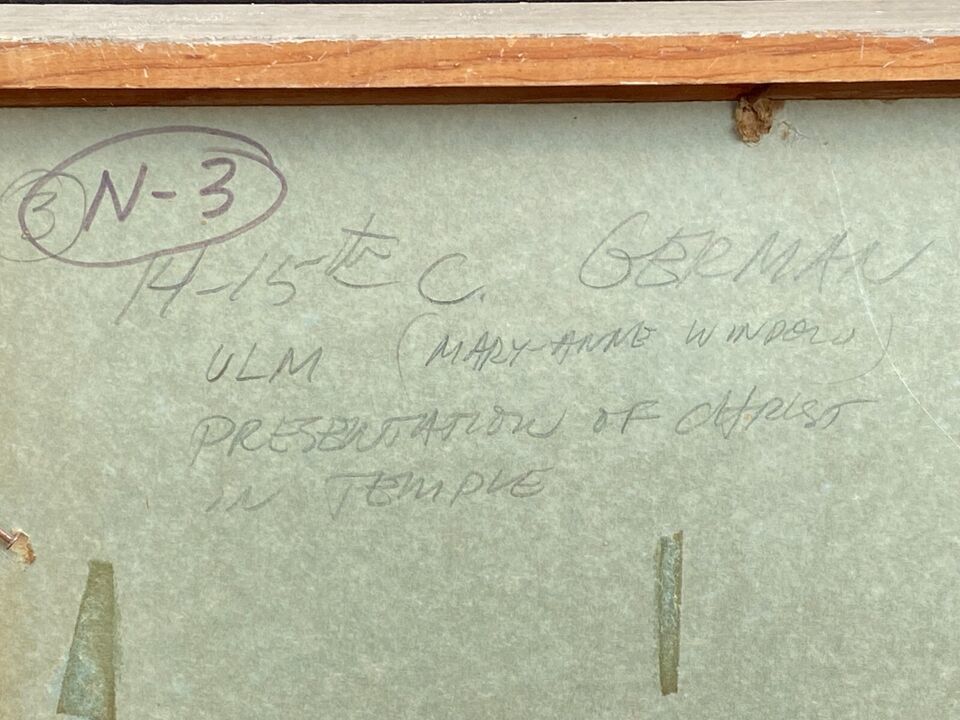 3 N-3
14-15th C. GERMAN
ULM (MARY-ANNE WINDOW)
PRESENTATION OF CHRIST
IN TEMPLE